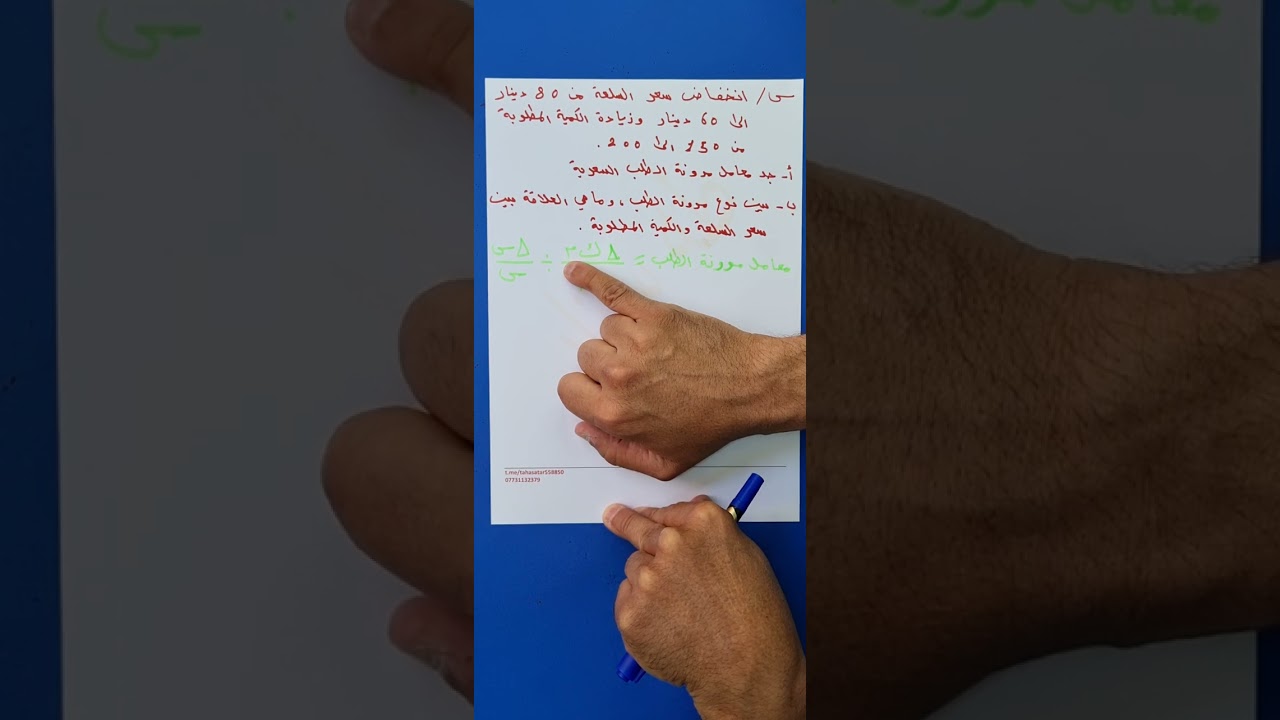 س/ انخفاض سعر السلعة من 80 دينار
الى 60 دينار وزيادة الكمية المطلوبة
من 150 الى 200 .
أ- جد معامل مرونة الطلب السعرية
ب- بين نوع مرونة الطلب ، وما هي العلاقة بين
سعر السلعة والكمية المطلوبة .
معامل مرونة الطلب = Δ ك م ÷ Δ س
س
t.me/tahasatar558850
07731132379